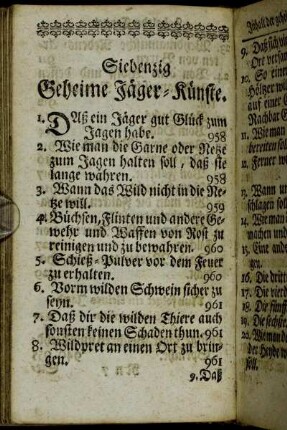 Siebenzig
Geheime Jäger-Künste.
1. Daß ein Jäger gut Glück zum
Jagen habe. 958
2. Wie man die Garne oder Netze
zum Jagen halten soll, daß sie
lange währen. 958
3. Wann das Wild nicht in die Ne-
tze will. 959
4. Büchsen, Flinten und andere Ge-
wehr und Waffen von Rost zu
reinigen und zu bewahren. 960
5. Schieß-Pulver vor dem Feuer
zu erhalten. 960
6. Vorm wilden Schwein sicher zu
seyn. 961
7. Daß dir die wilden Thiere auch
sonsten keinen Schaden thun. 961
8. Wildpret an einen Ort zu brin-
gen. 961
9. Daß
9. Daß
Ort
10. So eine
auf einer
Nachbar
11. Wie man
12. Ferner
13. Wann
schlagen
14. Wie man
machen und
15. Eine
16. Die dritte
17. Die
18. Die
19. Die sechste
20. Wie man
der Heyde
soll.